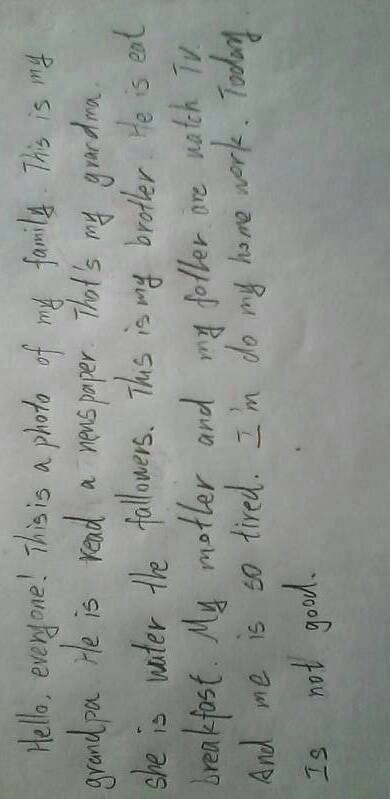 Hello, everyone! This is a photo of my family. This is my
grandpa. He is read a newspaper. That's my grandma.
she is water the fallowers. This is my brother. He is eat
breakfast. My mother and my father are watch TV.
And me is so tired. I'm do my home work. Today
Is not good.